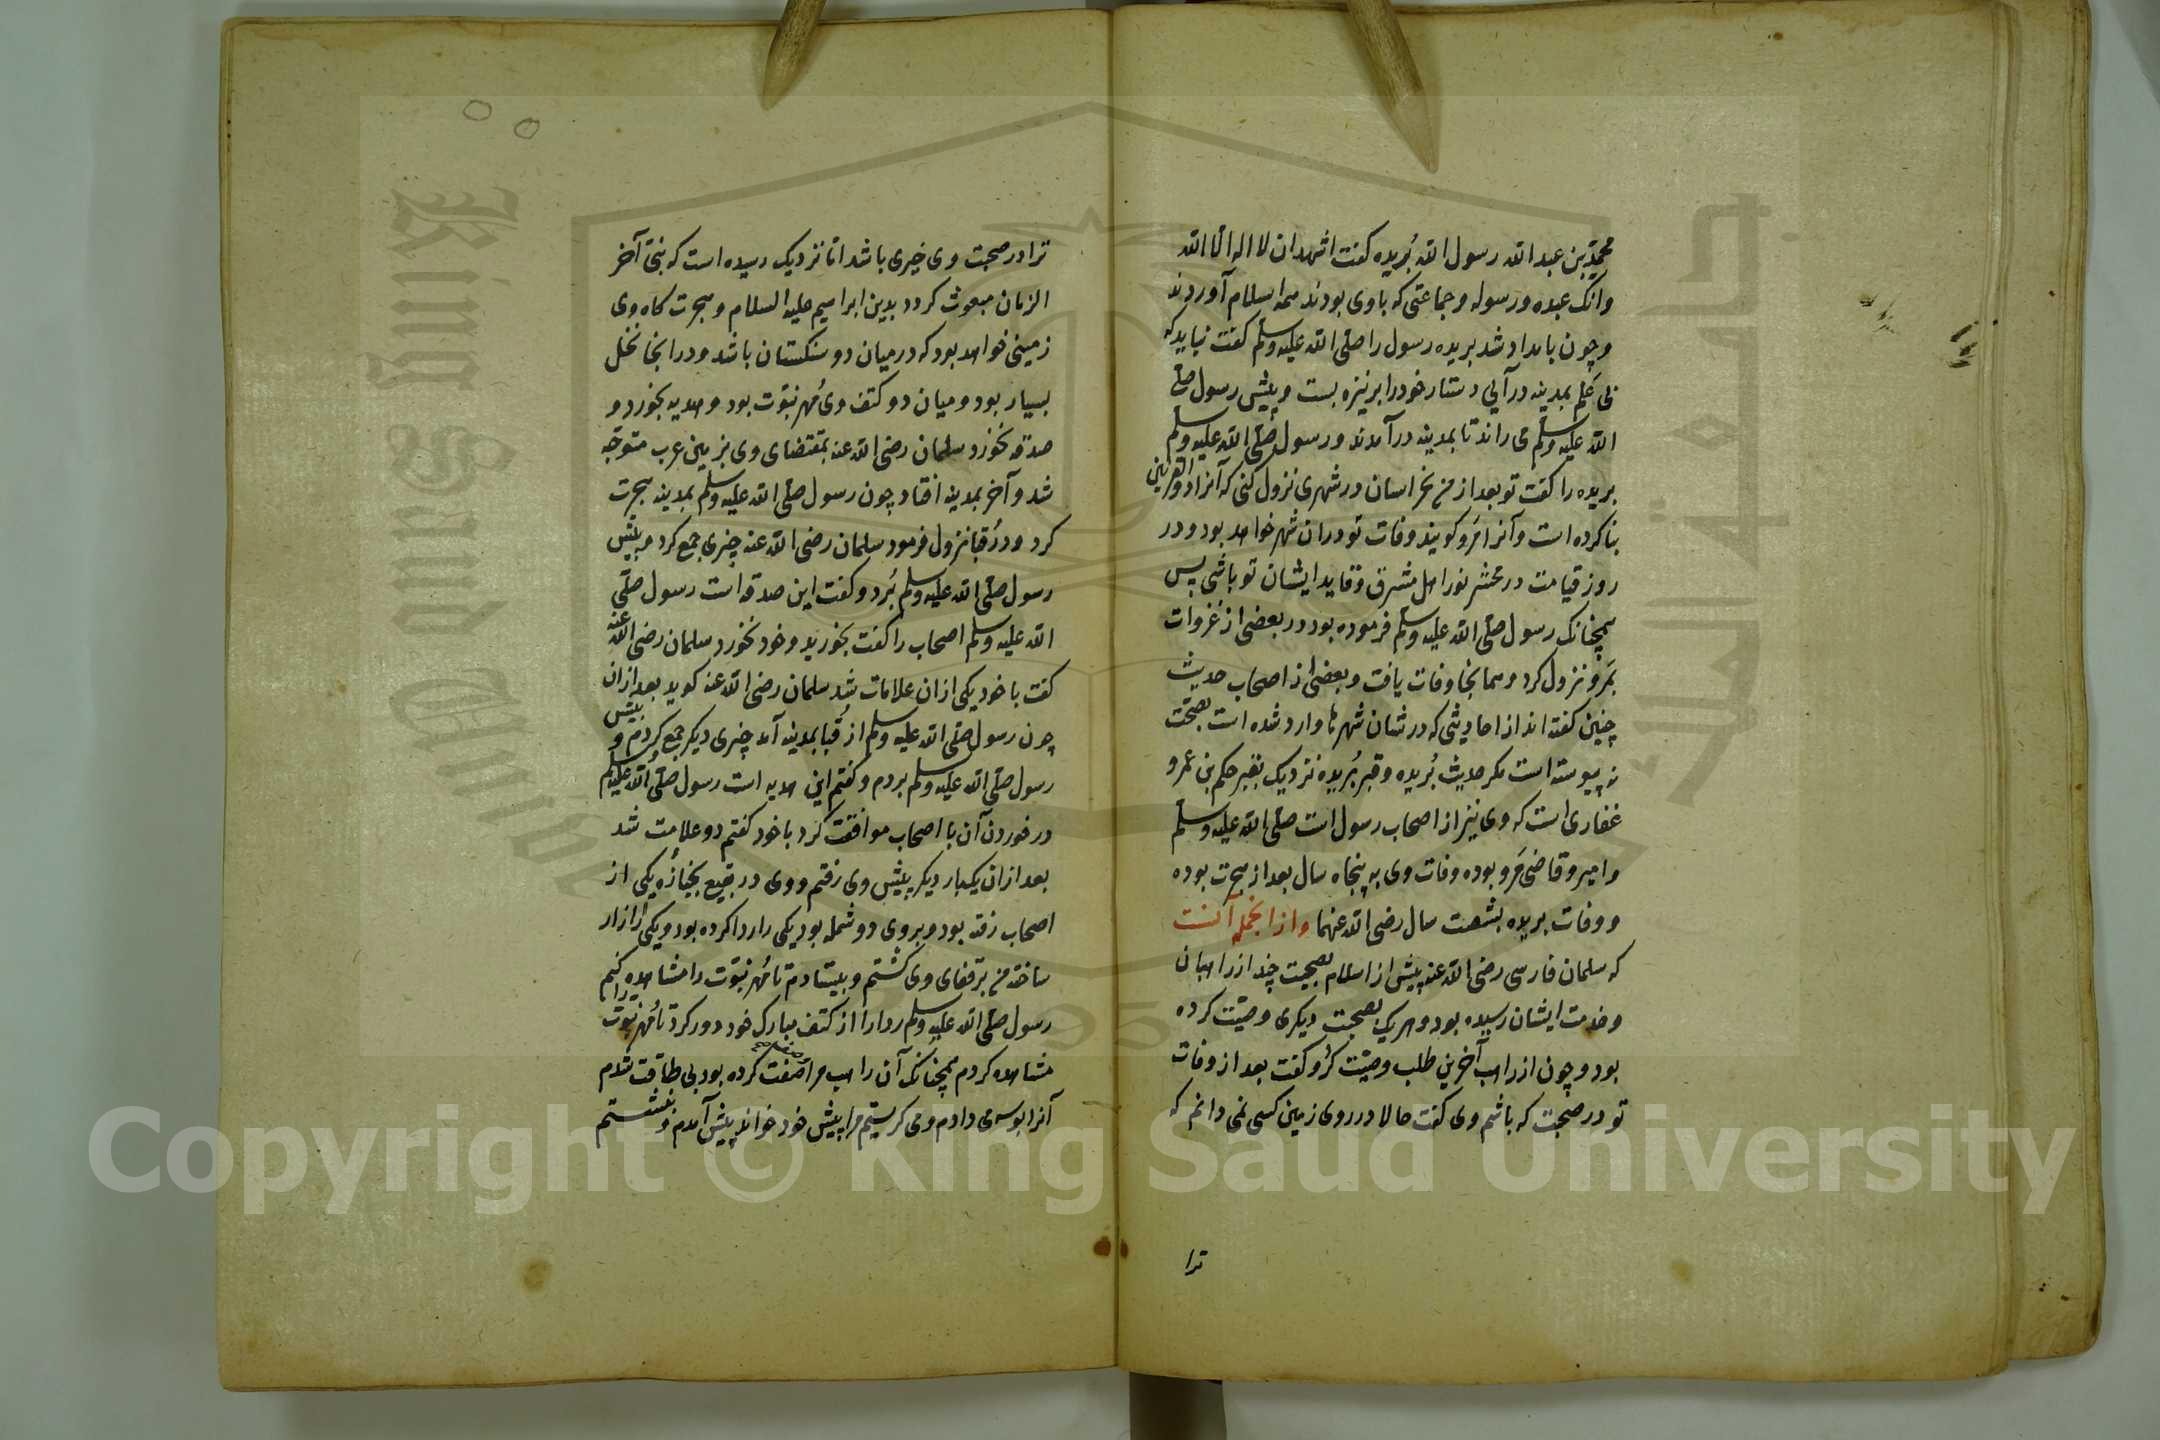 محمد بن عبد الله رسول الله بُریده کفت اشهد ان لا اله الا الله
وانک عبده ورسوله وجماعتی که باوی بودند همه اسلام آوردند
وچون بامداد شد بریده رسول را صلی الله علیه وسلم کفت نباید که
بی عَلَم بمدینه در آیی دستار خود را بر نیزه بست و پیش رسول صلی
الله علیه وسلم می راند تا بمدینه در آمدند ورسول صلی الله علیه وسلم
بریده را کفت تو بعد از من بخراسان در شهری نزول کنی که آنرا ذو القرنین
بنا کرده است وآنرا مَرو کویند وفات تو در ان شهر خواهد بود ودر
روز قیامت در محشر نور اهل مشرق وقاید ایشان تو باشی پس
همچنانک رسول صلی الله علیه وسلم فرموده بود در بعضی از غزوات
بمَرو نزول کرد وهمانجا وفات یافت وبعضی از اصحاب حدیث
چنین کفته اند از احادیثی که در شان شهرها وارد شده است بصحّت
نه پیوسته است مکر حدیث بُریده وقبر بُریده نزدیک بقبر حکم بن عمرو
غفاری است که وی نیز از اصحاب رسول است صلی الله علیه وسلم
وامیر وقاضی مَرو بوده وفات وی به پنجاه سال بعد از هجرت بوده
ووفات بریده بشصت سال رضی الله عنهما واز انجمله آنست
که سلمان فارسی رضی الله عنه پیش از اسلام بصحبت چند از راهبان
وخدمت ایشان رسیده بود وهر یک بصحبت دیکری وصیّت کرده
بود وچون از راهب آخرین طلب وصیّت کرد وکفت بعد از وفات
تو در صحبت که باشم وی کفت حالا در روی زمین کسی نمی دانم که
ترا
ترا در صحبت وی خیری باشد اما نزدیک رسیده است که نبی آخر
الزمان مبعوث کردد بدین ابراهیم علیه السلام وهجرت کاه وی
زمینی خواهد بود که در میان دو سنکستان باشد ودر انجا نخل
بسیار بود ومیان دو کتف وی مُهر نبوّت بود وهدیه بخورد و
صدقه نخورد سلمان رضی الله عنه بمقتضای وی بزمین عرب متوجّه
شد وآخر بمدینه افتاد چون رسول صلی الله علیه وسلم بمدینه هجرت
کرد ودر قُبا نزول فرمود سلمان رضی الله عنه چیزی جمع کرد وپیش
رسول صلی الله علیه وسلم بُرد وکفت این صدقه است رسول صلی
الله علیه وسلم اصحاب را کفت بخورید وخود نخورد سلمان رضی الله عنه
کفت با خود یکی از ان علامات شد سلمان رضی الله عنه کوید بعد ازان
چون رسول صلی الله علیه وسلم از قُبا بمدینه آمد چیزی دیکر جمع کردم و پیش
رسول صلی الله علیه وسلم بردم وکفتم این هدیه است رسول صلی الله علیه وسلم
در خوردن آن با اصحاب موافقت کرد با خود کفتم دو علامت شد
بعد ازان یکبار دیکر پیش وی رفتم ووی در بقیع بجنازهٔ یکی از
اصحاب رفته بود وبروی دو شمله بود یکی را ردا کرده بود ویکی را ازار
ساخته من بر قفای وی کشتم وبیستادم تا مُهر نبوّت را مشاهده کنم
رسول صلی الله علیه وسلم ردا را از کتف مبارک خود دور کرد تا مُهر نبوّت را
مشاهده کردم همچنانک آن راهب مرا صفت کرده بود بی طاقت شدم
آنرا بوسه می دادم ومی کریستم مرا پیش خود خواند پیش آمدم وبنشستم
King Saud University
Copyright © King Saud University